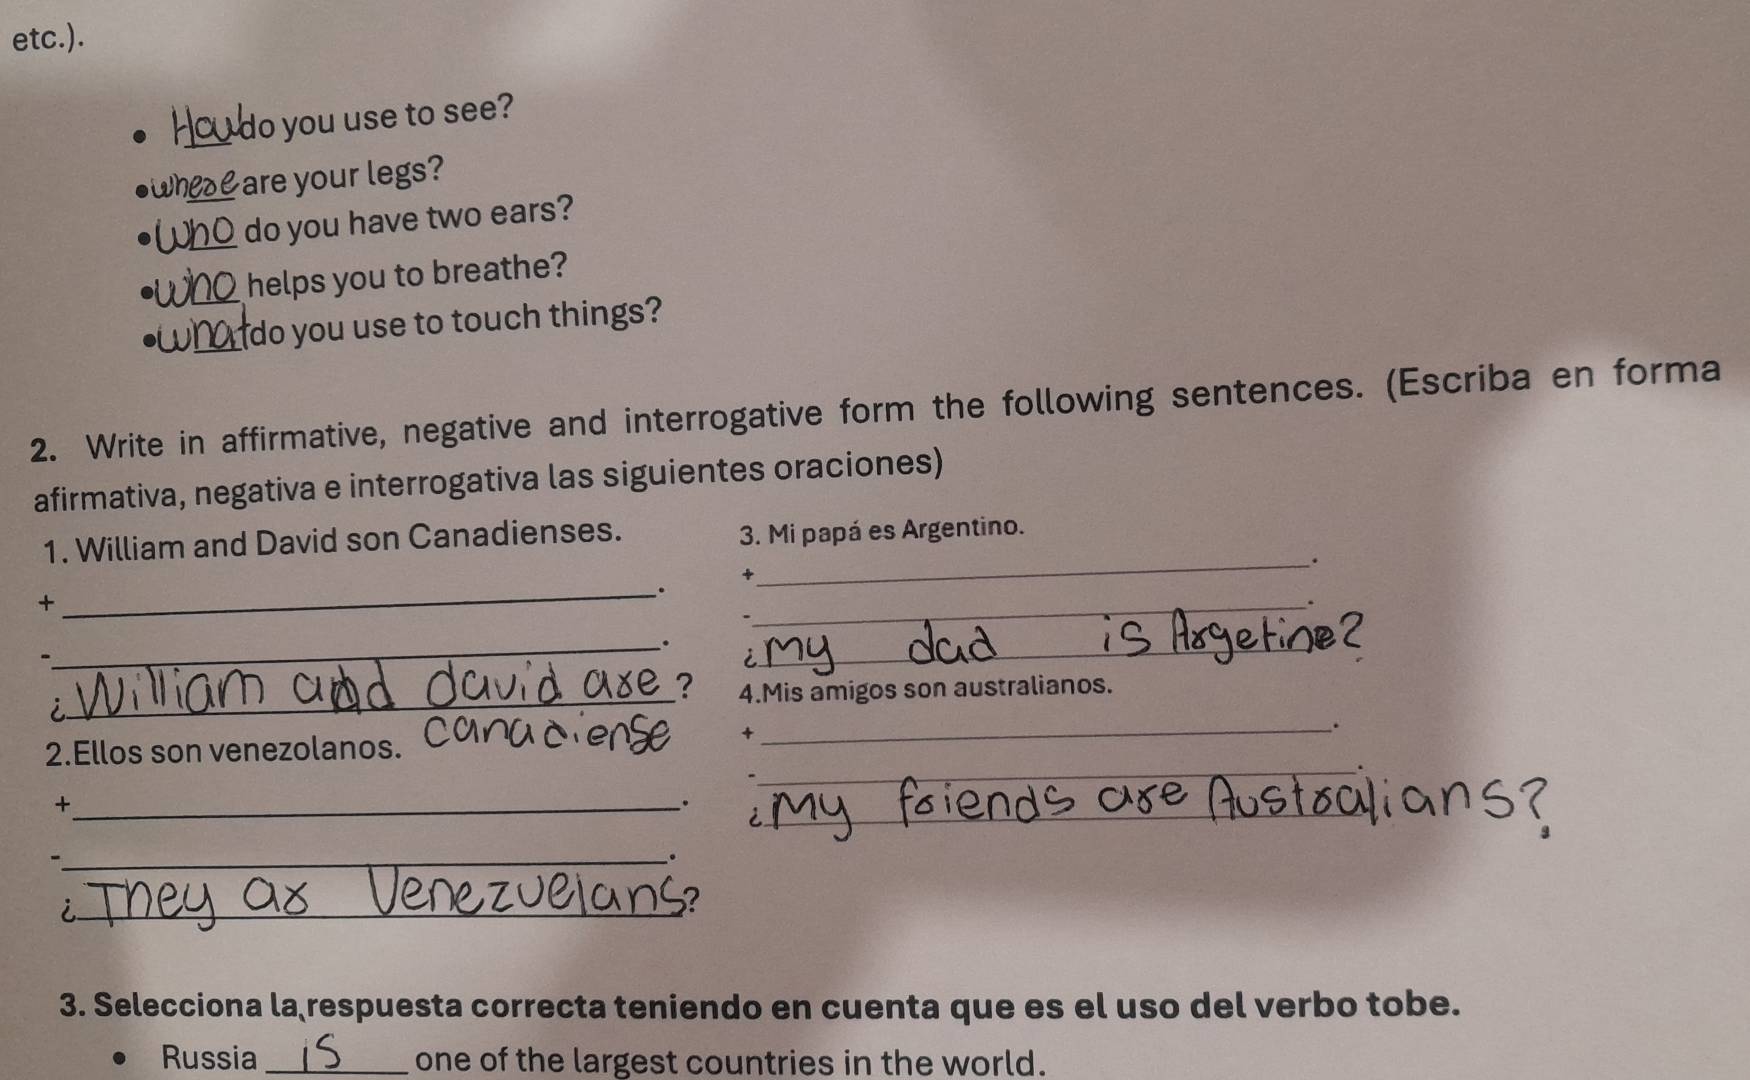 etc.).
• How do you use to see?
• where are your legs?
• Who do you have two ears?
• who helps you to breathe?
• what do you use to touch things?
2. Write in affirmative, negative and interrogative form the following sentences. (Escriba en forma
afirmativa, negativa e interrogativa las siguientes oraciones)
1. William and David son Canadienses.
+ ______.
- ______.
¿William and david are?
canadiense
2.Ellos son venezolanos.
+ ______.
- ______.
¿They ar Venezuelans?
3. Mi papá es Argentino.
+ ______.
- ______.
¿My dad is Argetine?
4.Mis amigos son australianos.
+ ______.
- ______.
¿My friends are Australians?
3. Selecciona la respuesta correcta teniendo en cuenta que es el uso del verbo tobe.
• Russia is one of the largest countries in the world.